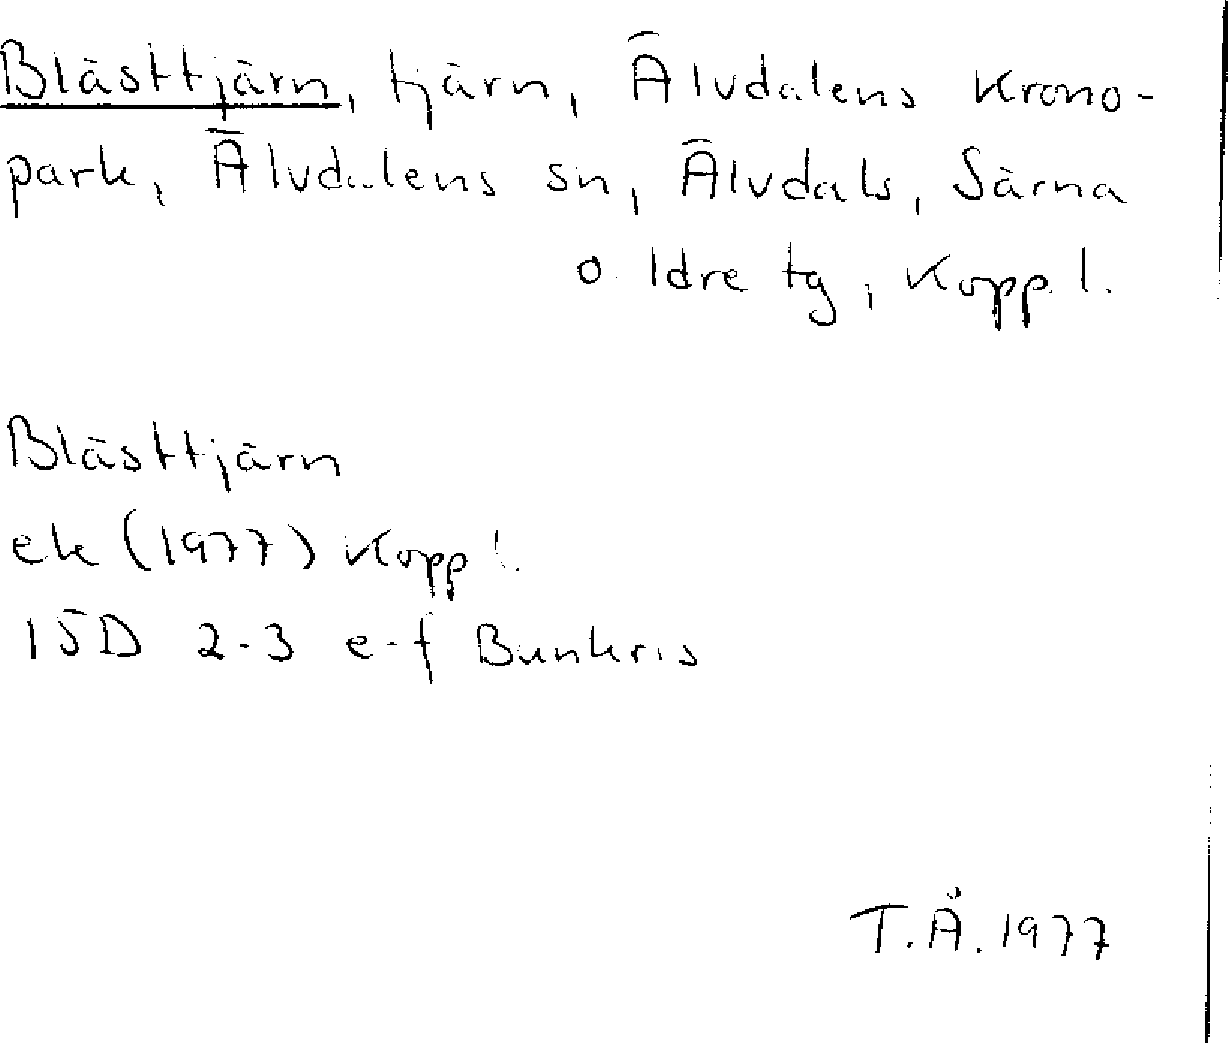 Blästtjärn, tjärn, Älvdalens Krono-
park, Älvdalens sn, Älvdals, Särna
o Idre tg, Kopp l.
Blästtjärn
ek (1977) Kopp l.
15D 2-3 e-f Bunkris
T.Å. 1977